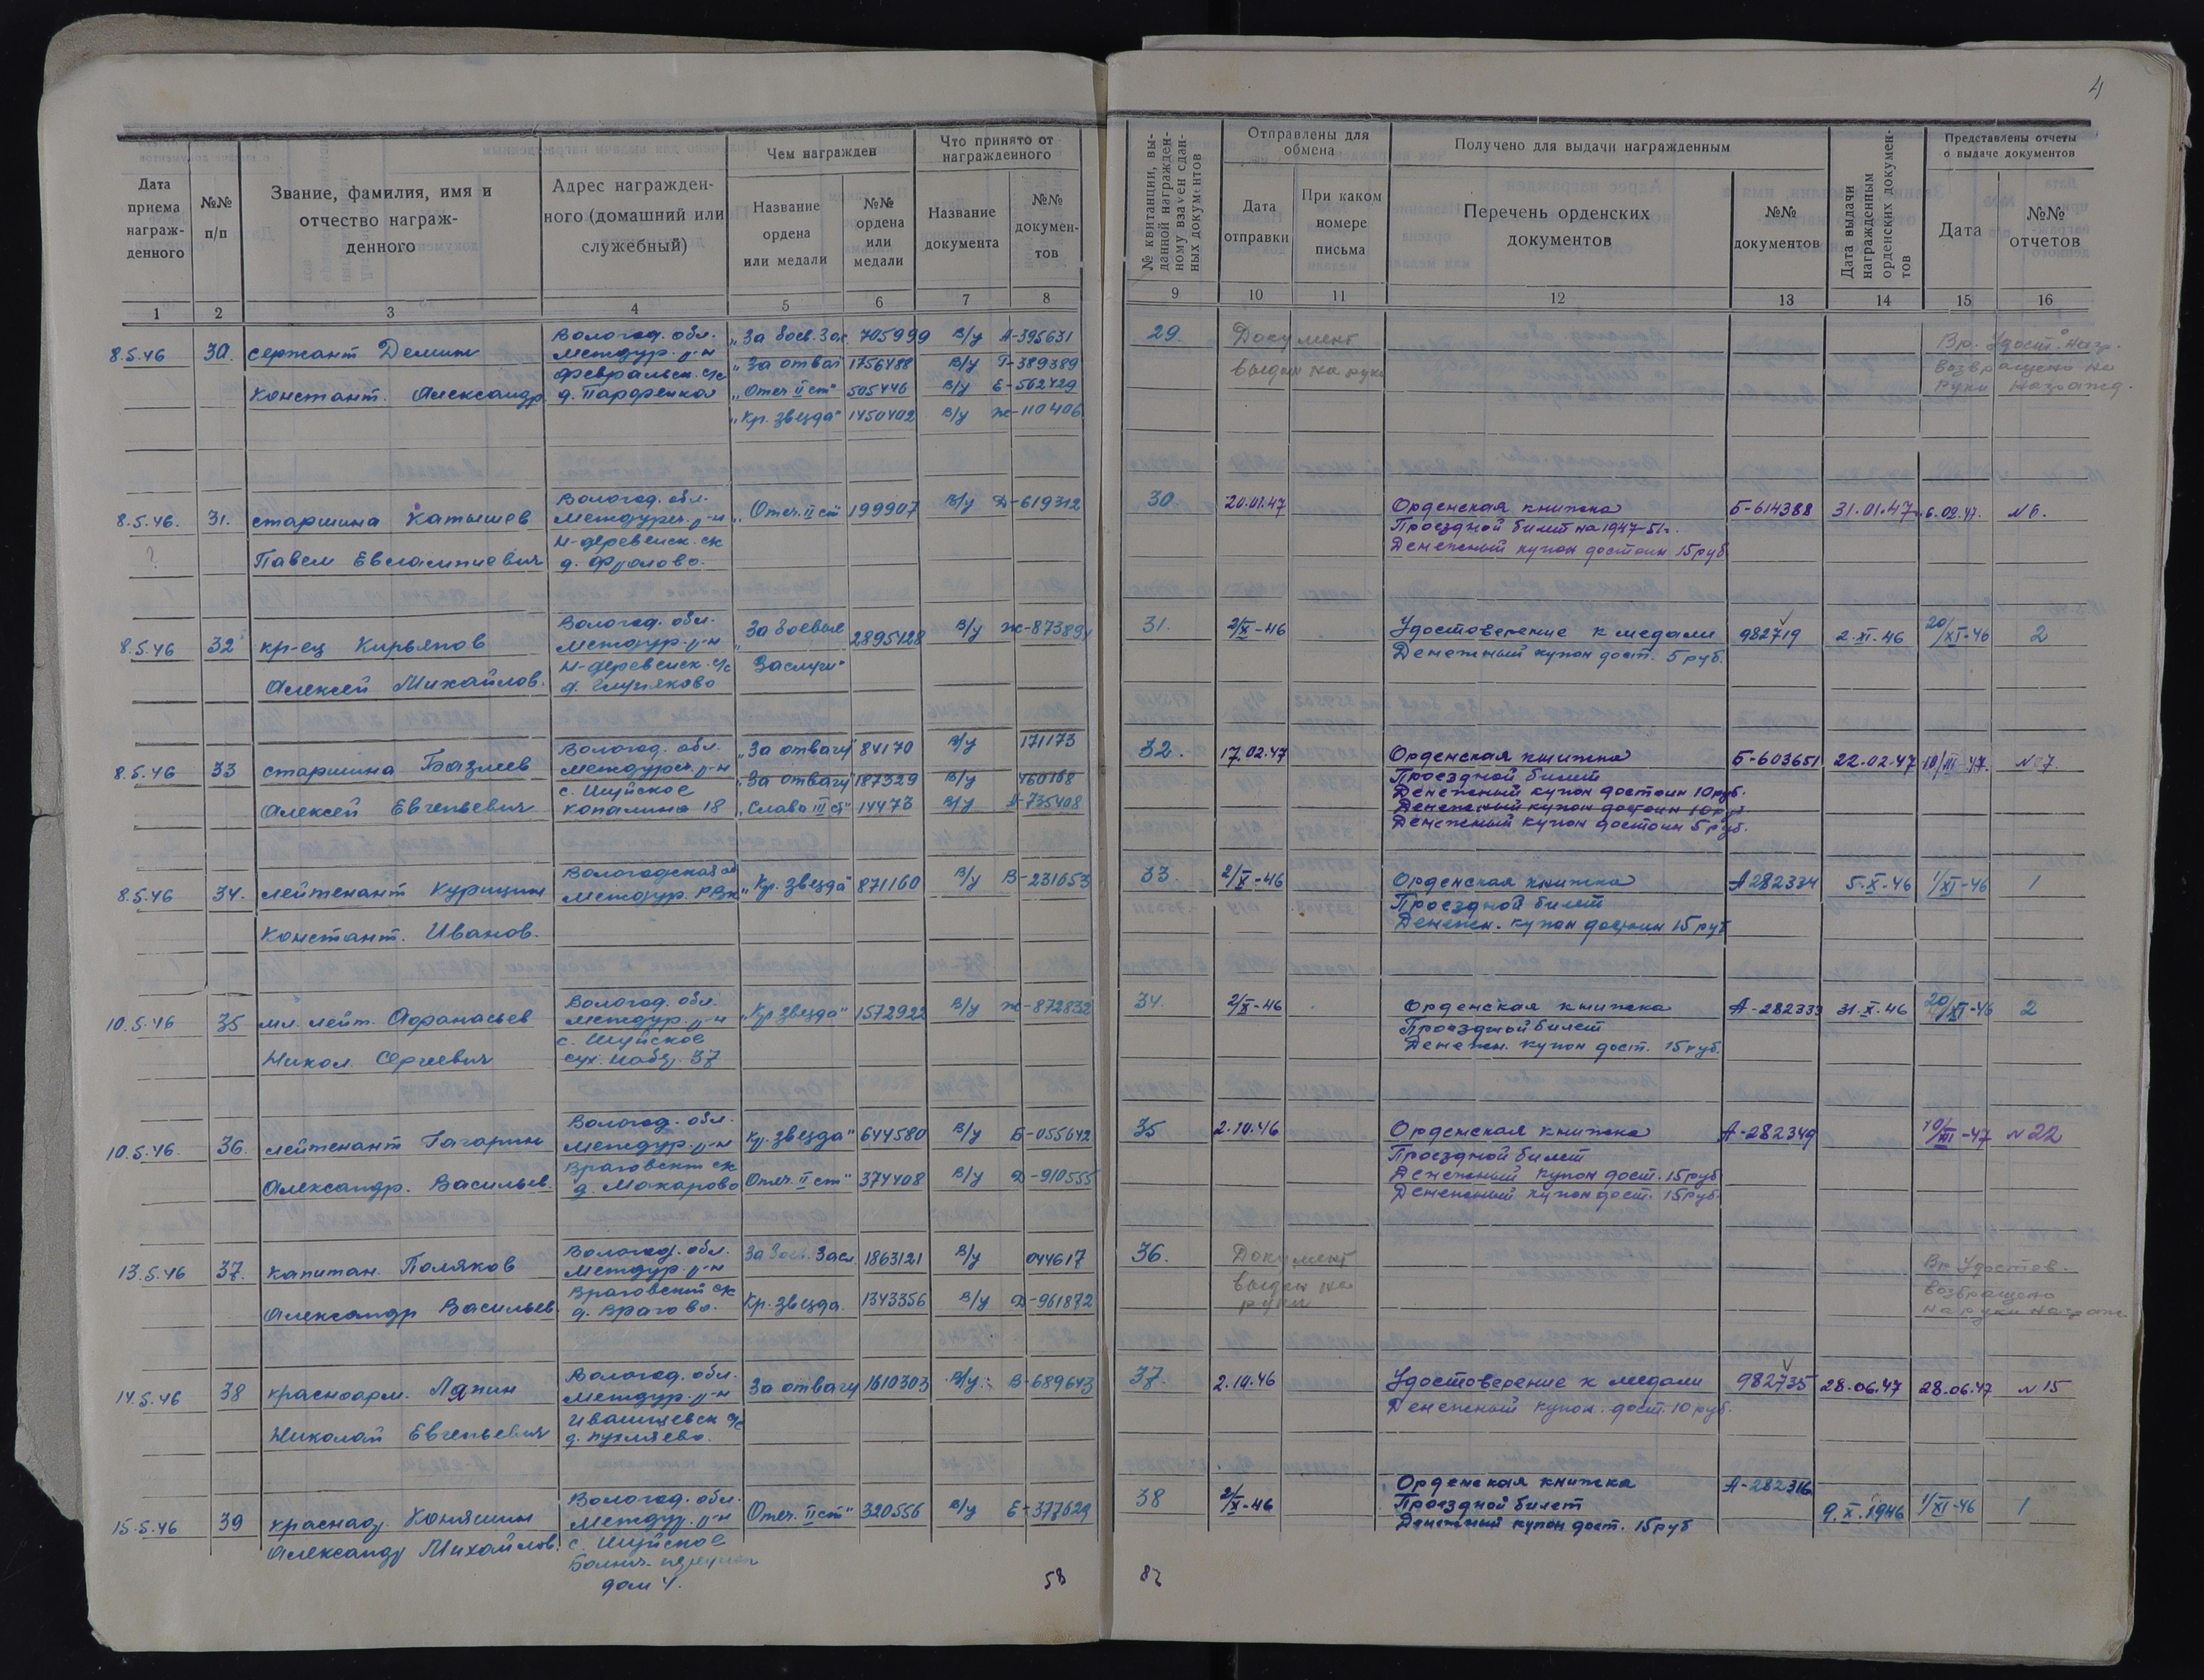 4
Дата приема награж-денного
№№ п/п
Звание, фамилия, имя и отчество награж-денного
Адрес награжден-ного (домашний или служебный)
Чем награжден
Название ордена или медали
№№ ордена или медали
Что принято от награжденного
Название документа
№№ докумен-тов
№ квитанции, вы-данной награжден-ному взамен сдан-ных документов
Отправлены для обмена
Дата отправки
При каком номере письма
Получено для выдачи награжденным
Перечень орденских документов
№№ документов
Дата выдачи награжденным орденских докумен-тов
Представлены отчеты о выдаче документов
Дата
№№ отчетов
1 2 3 4 5 6 7 8 9 10 11 12 13 14 15 16
8.5.46 30. сержант Демин Вологод. обл. „За боев. Зас. 705999 В/у А-395631 29. Документ Вр. Удост. Нагр.
Междур. р-н „За отваг 1756488 В/у Г-389389 выдан на руки возвращено на
Февральск. с/с
Констант. Александр. д. Парфенка „Отеч. II ст" 505446 В/у Е-562429 руки награжд.
„Кр. звезда" 1450402 В/у Ж-110406
8.5.46. 31. старшина Катышев Вологод. обл. „Отеч. II ст" 199907 В/у Д-619312 30. 20.01.47 Орденская книжка Б-614388 31.01.47г. 6.02.47. №6.
Междуреч. р-н Проездной билет на 1947-51г.
Н-деревенск. с/с Денежный купон достоин 15 руб
? Павел Евлампиевич д. Фролово.
8.5.46 32 кр-ец Кирьянов Вологод. обл. „За боевые 2895428 В/у Ж-87389 31. 2/X-46 Удостоверение к медали 982719 2.XI.46 20/XI-46 2
Междур. р-н Денежный купон дост. 5 руб.
Н-деревенск. с/с Заслуги"
Алексей Михайлов. д.
8.5.46 33 старшина Базлев Вологод. обл. „За отвагу" 84170 В/у 171173 32. 17.02.47 Орденская книжка Б-603651 22.02.47 10/III-47. №7.
Междуреч. р-н „За отвагу 187329 В/у 460168 Проездной билет
с. Шуйское Денежный купон достоин 10 руб.
Алексей Евгеньевич 18 „Слава III ст" 14473 В/у А-735408 Денежный купон достоин 10 руб
Денежный купон достоин 5 руб.
8.5.46 34. лейтенант Курицин Вологодская об „Кр. звезда" 871160 В/у В-231653 33. 2/X-46 Орденская книжка А 282334 5.X.46 1/XI-46 1
Междур. РВК Проездной билет
Констант. Иванов. Денежн. купон достоин 15 руб
10.5.46 35 мл. лейт. Афанасьев Вологод. обл. „Кр. звезда" 1572922 В/у Ж-872832 34. 2/X-46 Орденская книжка А-282333 31.X.46 20/XI-46 2
Междур. р-н Проездной билет
с. Шуйское Денежн. купон дост. 15 руб.
Никол. Сергеевич сух. набер. 37
10.5.46. 36. лейтенант Гагарин Вологод. обл. Кр. звезда" 644580 В/у Б-055642 35 2.10.46 Орденская книжка А-282349 10/XII-47 №22
Междур. р-н Проездной билет
Враговский с/с Денежный купон дост. 15 руб
Александр. Васильев. д. Макарово Отеч. II ст" 374408 В/у Д-910555 Денежный купон дост. 15 руб.
13.5.46 37. капитан. Поляков Вологод. обл. За боев. Засл. 1863121 В/у 044617 36. Документ Вр Удостов.
Междур. р-н выдан на возвращено
Враговский с/с руки на руки награж.
Александр Васильев. д. Врагово. Кр. звезда. 1343356 В/у Д-961872
14.5.46 38 красноарм. Лапин Вологод. обл. За отвагу 1610303 В/у В-689643 37. 2.10.46 Удостоверение к медали 982735 28.06.47 28.06.47 №15
Междур. р-н Денежный купон дост. 10 руб.
с/с
Николай Евгеньевич д.
15.5.46 39 красноар. Коняшин Вологод. обл. Отеч. II ст" 320556 В/у Е-377629 38 2/X-46 Орденская книжка А-282316 9.X.1946 1/XI-46 1
Междур. р-н Проездной билет
Александр Михайлов. с. Шуйское Денежный купон дост. 15 руб
дом 4.
58 82